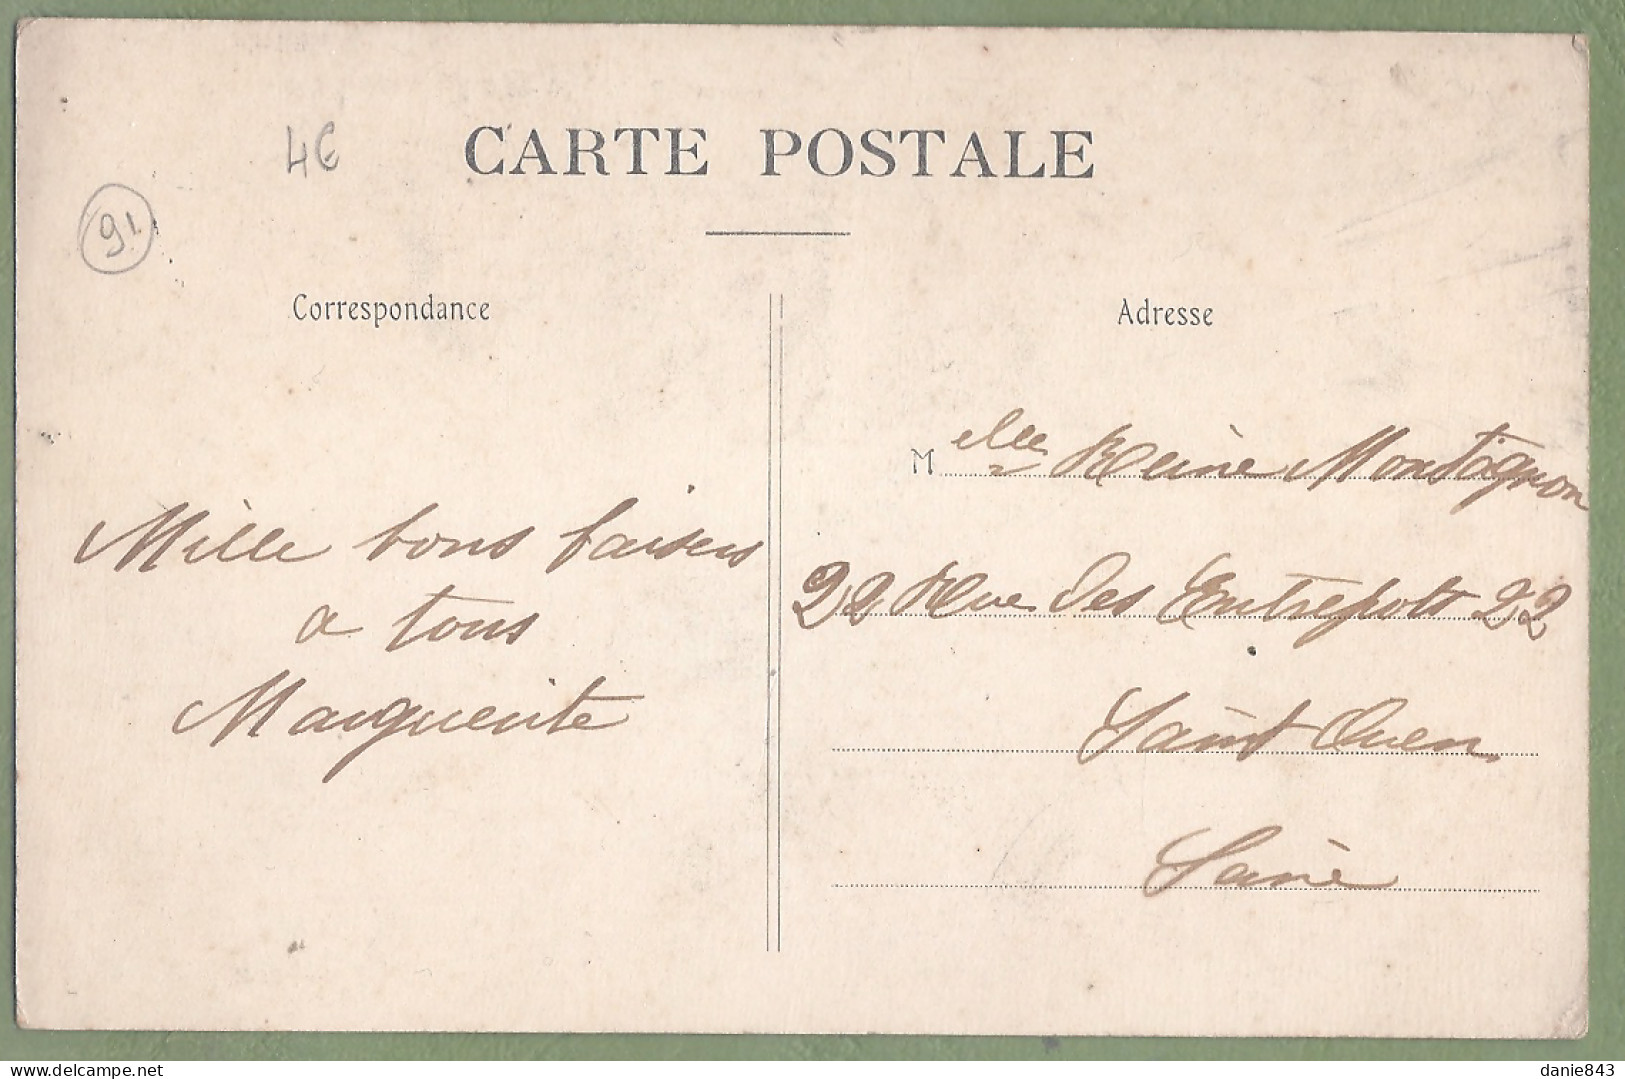 4€
CARTE POSTALE
91
Correspondance
Adresse
Mille bons baisers
a tous
Marguerite
Melle Reine Montagnon
22 Rue des Entrepots 22
Saint Ouen
Seine
delcampe.net
danie843